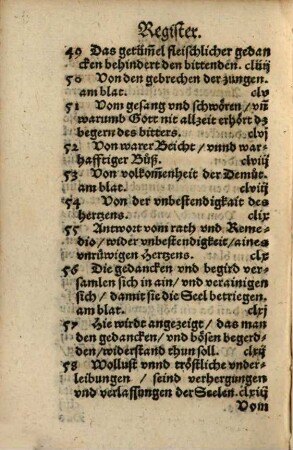 Register.
49 Das getüm̃el fleischlicher gedan
cken behindert den bittenden. cliiij
50 Von den gebrechen der zungen.
am blat. clv
51 Vom gesang vnd schwören / vñ
warumb Gott nit allzeit erhört dz
begern des bitters. clvj
52 Von warer Beicht / vnnd war-
hafftiger Büß. clviij
53 Von volkom̃enheit der Demüt.
am blat. clviij
54 Von der vnbestendigkait des
hertzens. clix
55 Antwort vom rath vnd Reme-
dio / wider vnbestendigkeit / aines
vnrüwigen Hertzens. clx
56 Die gedancken vnd begird ver-
samlen sich in ain / vnd verainigen
sich / damit sie die Seel betriegen.
am blat. clxj
57 Hie wirdt angezeigt / das man
den gedancken / vnd bösen begerd-
den / widerstand thun soll. clxij
58 Wollust vnnd tröstliche vnder-
leibungen / seind verhergungen
vnd verlassungen der Seelen. clxiij
Vom